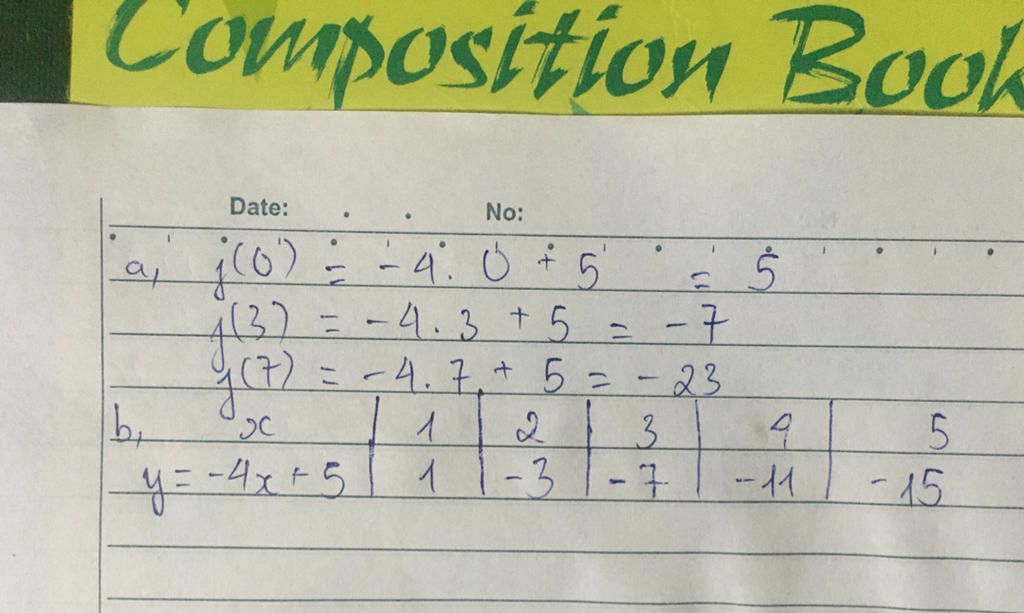 Composition Book
Date: No:
a, f(0) = -4. 0 + 5 = 5
f(3) = -4.3 + 5 = -7
f(7) = -4.7 + 5 = -23
b, x | 1 | 2 | 3 | 4 | 5
y = -4x + 5 | 1 | -3 | -7 | -11 | -15